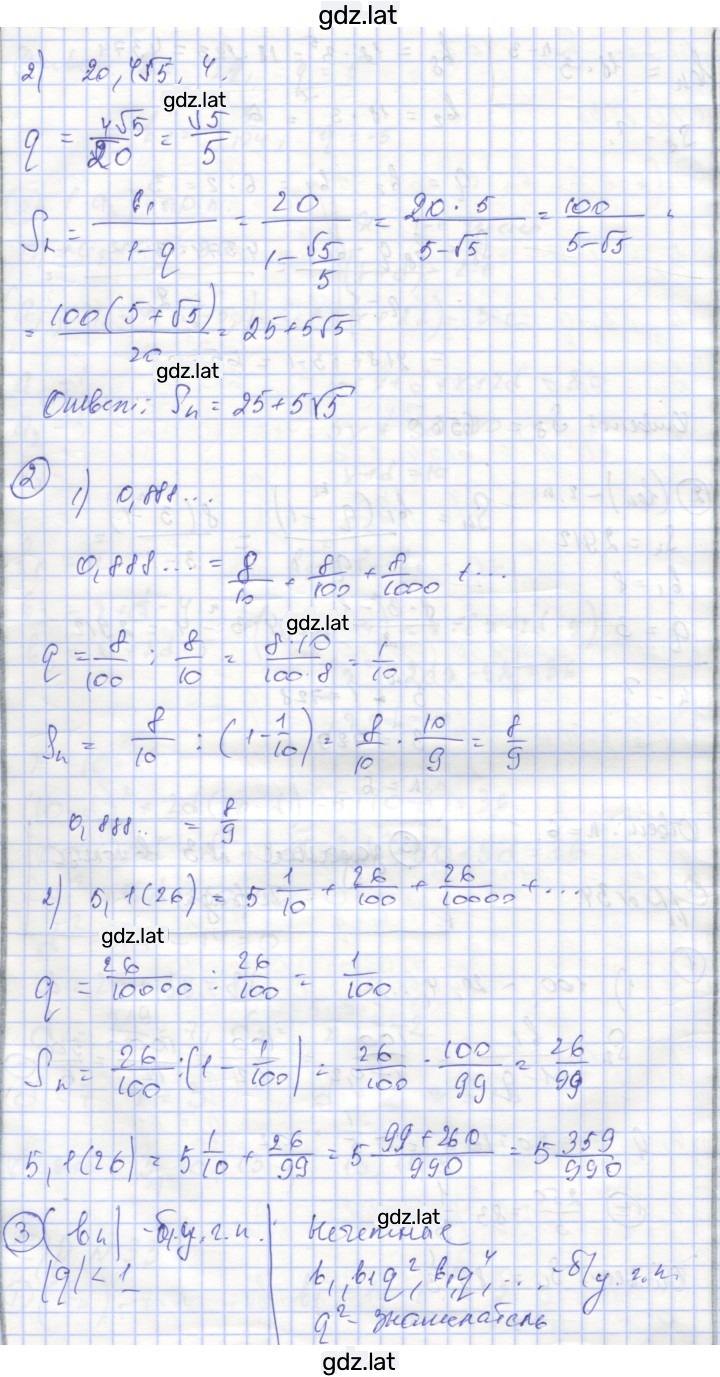 gdz.lat
2) 20, 4√5, 4.
gdz.lat
q = 4√5/20 = √5/5
Sn = b1/(1-q) = 20/(1-√5/5) = 20·5/(5-√5) = 100/(5-√5) =
= 100(5+√5)/20 = 25+5√5
gdz.lat
Ответ: Sn = 25+5√5
2 1) 0,888...
0,888... = 8/10 + 8/100 + 8/1000 + ...
gdz.lat
q = 8/100 : 8/10 = 8·10/100·8 = 1/10
Sn = 8/10 : (1-1/10) = 8/10 · 10/9 = 8/9
0,888.. = 8/9
2) 5,1(26) = 5 1/10 + 26/100 + 26/10000 + ...
gdz.lat
q = 26/10000 : 26/100 = 1/100
Sn = 26/100 : (1 - 1/100) = 26/100 · 100/99 = 26/99
5,1(26) = 5 1/10 + 26/99 = 5 99+260/990 = 5 359/990
gdz.lat
3 (bn) - б.у.г.п.
|q| < 1
Нечетные
b1, b1q², b1q⁴, ... - б/у.г.п.
q² - знаменатель
gdz.lat